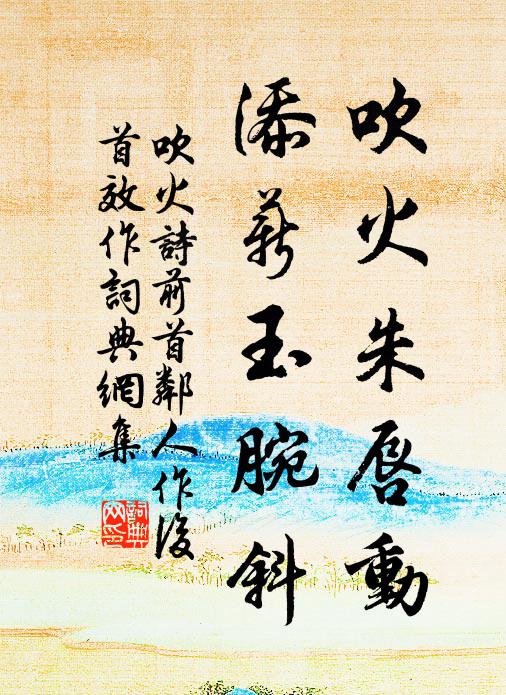 吹火朱唇動
添薪玉腕斜
吹火詩前首鄰人作後
首效作詞典網集
詞典網印